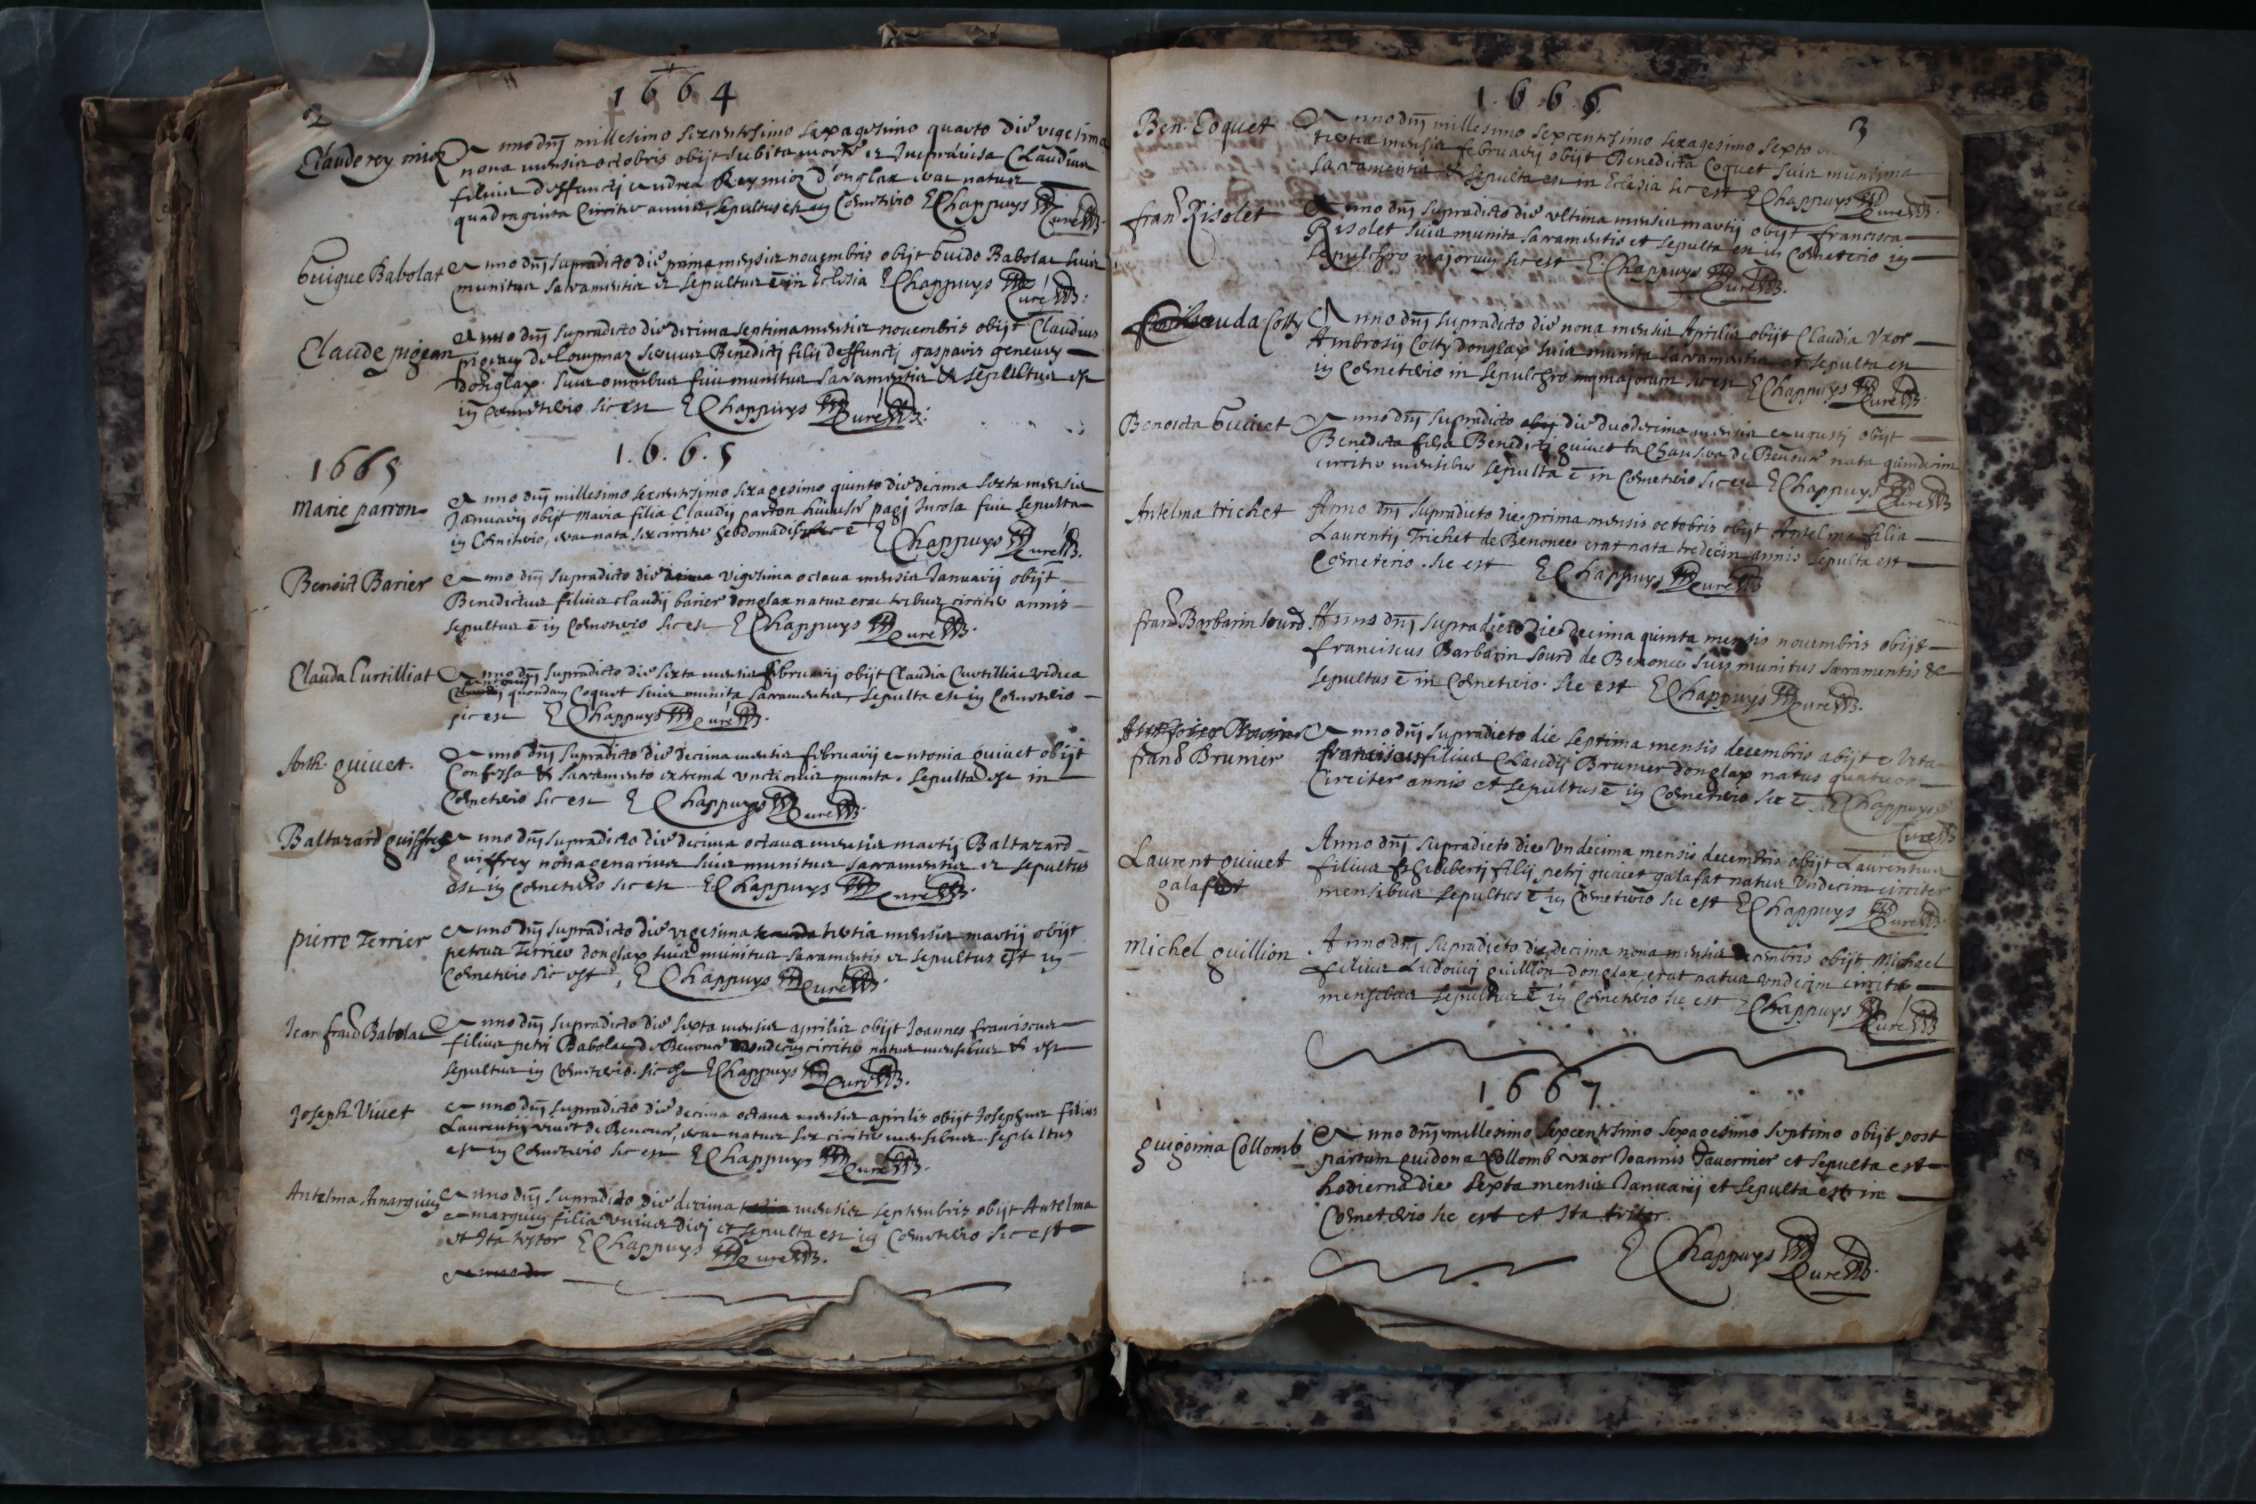 2
1664
Claude rey mioz
Anno dnj millesimo sexcentesimo sexagesimo quarto die vigesima
nona mensis octobris obijt subita morte et Claudius
filius deffunctj Andrea Rey mioz d'onglax erat natus
quadraginta circiter annis, sepultus est in Cœmeterio E Chappuys Curé
Guigue Babolat
Anno dnj supradicto die prima mensis novembris obijt Guido Babolat suis
munitus sacramentis et sepultus ē in Eclesia E Chappuys Curé
Claude pigeon
Anno dnj supradicto die decima septima mensis novembris obijt Claudius
pigeon de servus Benedictj filij deffunctj gasparis
donglax. suis omnibus fuit munitus sacramentis & sepultus est
in Cœmeterio sic est E Chappuys Curé
1665
1.6.6.5
Marie parron
Anno dnj millesimo sexcentesimo sexagesimo quinto die decima sexta mensis
Januarij obijt Maria filia Claudij parron pagj Incola fuit sepulta
in Cœmeterio, erat nata sex circiter hebdomadis ē E Chappuys Curé
Benoist Barier
Anno dnj supradicto die vigesima octava mensis Januarij obijt
Benedictus filius claudij barier donglax natus erat tribus circiter annis
sepultus ē in Cœmeterio sic est E Chappuys Curé
Clauda Curtilliat
Anno dnj supradicto die sexta mensis februarij obijt Claudia Curtilliat vidua
quondam Coquet suis munita sacramentis, sepulta est in Cœmeterio
sic est E Chappuys Curé
Anth. guivet.
Anno dnj supradicto die decima mensis februarij Antonia guivet obijt
Confessa & sacramento extremæ unctionis munita. sepulta est in
Cœmeterio sic est E Chappuys Curé
Baltazard guiffrey
Anno dnj supradicto die decima octava mensis martij Baltazard
guiffrey nonagenarius suis munitus sacramentis et sepultus
est in Cœmeterio sic est E Chappuys Curé
pierre Terrier
Anno dnj supradicto die vigesima tertia mensis martij obijt
petrus Terrier donglax suis munitus sacramentis et sepultus est in
Cœmeterio sic est, E Chappuys Curé
Jean franc Babolat
Anno dnj supradicto die sexta mensis aprilis obijt Joannes franciscus
filius petri Babolat de Benonce undecim circiter natus mensibus & est
sepultus in Cœmeterio. sic est E Chappuys Curé
Joseph Vivet
Anno dnj supradicto die decima octava mensis aprilis obijt Josephus filius
Laurentij vivet de Benonce, erat natus sex circiter mensibus sepultus
est in Cœmeterio sic est E Chappuys Curé
Antelma Amarguin
Anno dnj supradicto die decima mensis septembris obijt Antelma
Amarguin filia unius diej et sepulta est in Cœmeterio sic est
et Ita testor E Chappuys Curé
1.6.6.6.
3
Ben. Coquet
Anno dnj millesimo sexcentesimo sexagesimo sexto
tertia mensis februarij obijt Benedicta Coquet suis munita
sacramentis & sepulta est in Eclesia sic est E Chappuys Curé
franc Risolet
Anno dnj supradicto die ultima mensis martij obijt francisca
Risolet suis munita sacramentis et sepulta est in Cœmeterio in
sepulchro majorum sic est E Chappuys Curé
Clauda Cotty
Anno dnj supradicto die nona mensis Aprilis obijt Claudia Uxor
Ambrosij Cotty donglax suis munita sacramentis et sepulta est
in Cœmeterio in sepulchro majorum sic est E Chappuys Curé
Benoicta Guivet
Anno dnj supradicto die duodecima mensis Augusti obijt
Benedicta filia Benedictj guivet de Benonce nata quindecim
circiter mensibus sepulta ē in Cœmeterio sic est E Chappuys Curé
Antelma trichet
Anno dnj supradicto die prima mensis octobris obijt Antelma filia
Laurentij Trichet de Benonce erat nata tredecim annis sepulta est
Cœmeterio. sic est E Chappuys Curé
franc Barbarin sourd
Anno dnj supradicto die decima quinta mensis novembris obijt
franciscus Barbarin sourd de Benonce suis munitus sacramentis &
sepultus ē in Cœmeterio. sic est E Chappuys Curé
franc Brunier
Anno dnj supradicto die septima mensis decembris abijt e vita
franciscus filius Claudij Brunier donglax natus quatuor
Circiter annis et sepultus ē in Cœmeterio sic ē E Chappuys
Curé
Laurent guivet
galafat
Anno dnj supradicto die undecima mensis decembris obijt Laurentius
filius philibertj filij petrj guivet galafat natus undecim circiter
mensibus sepultus ē in Cœmeterio sic est E Chappuys Curé
Michel guillion
Anno dnj supradicto die decima nona mensis decembris obijt Michael
filius Ludovicj guillion donglax erat natus undecim circiter
mensibus sepultus ē in Cœmeterio sic est E Chappuys Curé
1667
guigonna Collomb
Anno dnj millesimo sexcentesimo sexagesimo septimo obijt post
partum guidona Collomb uxor Joannis Tavernier et sepulta est
hodierna die sexta mensis Januarij et sepulta est in
Cœmeterio sic est et Ita testor.
E Chappuys Curé